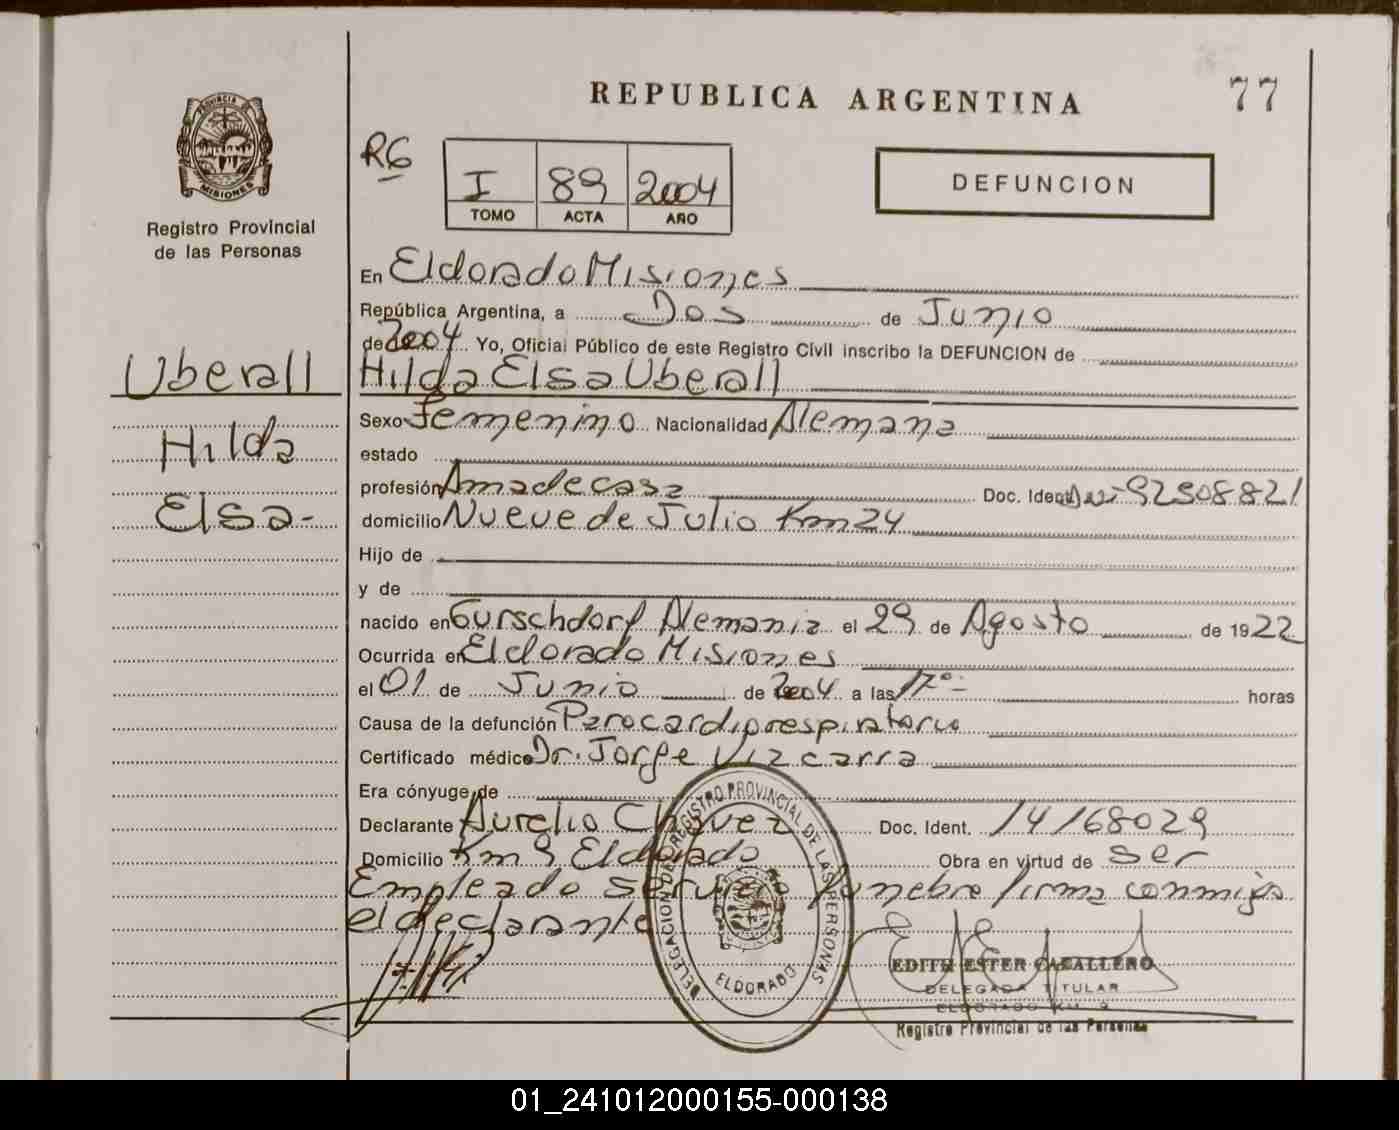 REPUBLICA ARGENTINA
77
PROVINCIA DE
MISIONES
Registro Provincial
de las Personas
R6
I 89 2004
TOMO ACTA AÑO
DEFUNCION
Uberall
Hilda
Elsa-
En Eldorado Misiones
República Argentina, a Dos de Junio
de 2004 Yo, Oficial Público de este Registro Civil inscribo la DEFUNCION de
Hilda Elsa Uberall
Sexo Femenino Nacionalidad Alemana
estado
profesión Ama de casa Doc. Ident. 92308821
domicilio Nueve de Julio Km 24
Hijo de
y de
nacido en Gurschdorf Alemania el 29 de Agosto de 1922
Ocurrida en Eldorado Misiones
el 01 de Junio de 2004 a las 17°- horas
Causa de la defunción Parocardiorespiratorio
Certificado médico Dr. Jorge Vizcarra
Era cónyuge de
Declarante Aurelio Chavez Doc. Ident. 14168029
Domicilio Km 9 Eldorado Obra en virtud de ser
Empleado servicio funebre firma conmigo
el declarante
DELEGACION DEL REGISTRO PROVINCIAL DE LAS PERSONAS
ELDORADO
EDITH ESTER CABALLERO
DELEGADA TITULAR
ELDORADO KM. 9
Registro Provincial de las Personas
01_241012000155-000138